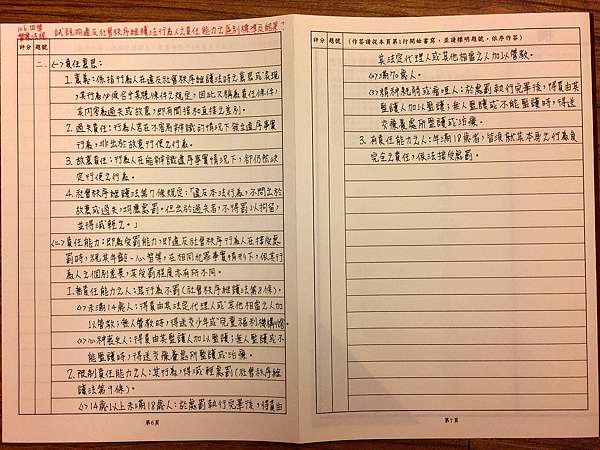 106 四等
警察法規
試説明違反社會秩序維護法行為人之責任能力之區別標準及結果？
評分 題號
二、
(一)責任意思：
1. 意義：係指行為人在違反社會秩序維護法時之意思或表現
，其行為必須合乎某種條件之規定，因此又稱為責任條件，
其內容為過失或故意，即有間接和直接之差別。
2. 過失責任：行為人若在不容易辨識的情況下發生違序事實
行為，非出於故意行使之行為。
3. 故意責任：行為人在能辨識違序事實情況下，卻仍依決
定行使之行為。
4. 社會秩序維護法第7條規定：「違反本法行為，不問出於
故意或過失，均應處罰。但出於過失者，不得罰以拘留，
並得減輕之。」
(二)責任能力：即為受罰能力，即違反社會秩序行為人在接受處
罰時，視其年齡、心智等，在相同犯罪事實情形下，依其行
為人之個別差異，其受罰程度亦有所不同。
1. 無責任能力之人：其行為不罰(社會秩序維護法第8條)。
(1)未滿14歲人：得責由其法定代理人或其他相當之人加
以管教；無人管教時，得送交少年或兒童福利機構收容。
(2)心神喪失人：得責由其監護人加以監護；無人監護或不
能監護時，得送交療養處所監護或治療。
2. 限制責任能力之人：其行為，得減輕處罰(社會秩序維
護法第9條)。
(1)14歲以上未滿18歲人：於處罰執行完畢後，得責由
第6頁
評分 題號 (作答請從本頁第1行開始書寫，並請標明題號，依序作答)
其法定代理人或其他相當之人加以管教。
(2)滿70歲人。
(3)精神耗弱或瘖啞人：於處罰執行完畢後，得責由其
監護人加以監護；無人監護或不能監護時，得送
交療養處所監護或治療。
3. 有責任能力之人：年滿18歲者，皆須就其本身之行為負
完全之責任，依法接受處罰。
第7頁